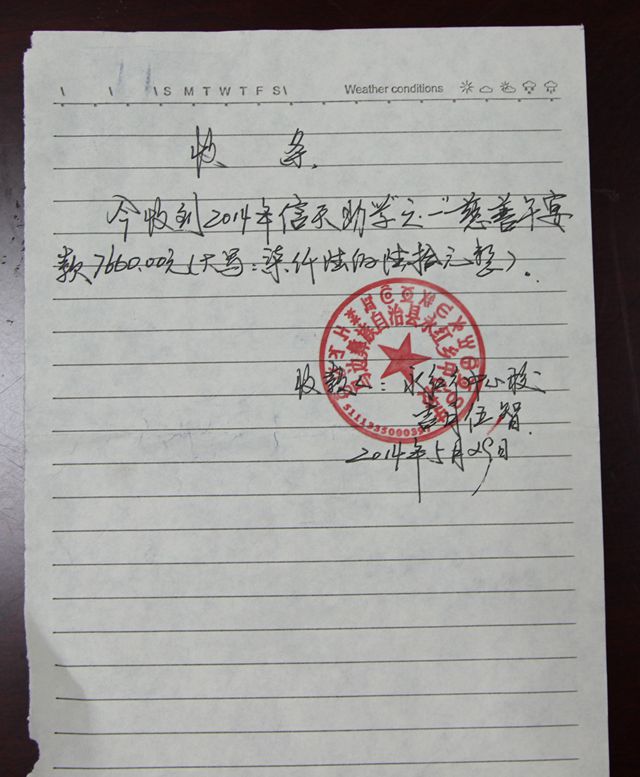 S M T W T F S
Weather conditions
收条.
今收到2014年信天助学之一慈善午宴
款7660.00元(大写:柒仟陆佰陆拾元整).
马边彝族自治县永红乡中心校
收款人:永红乡中心校
2014年5月29日